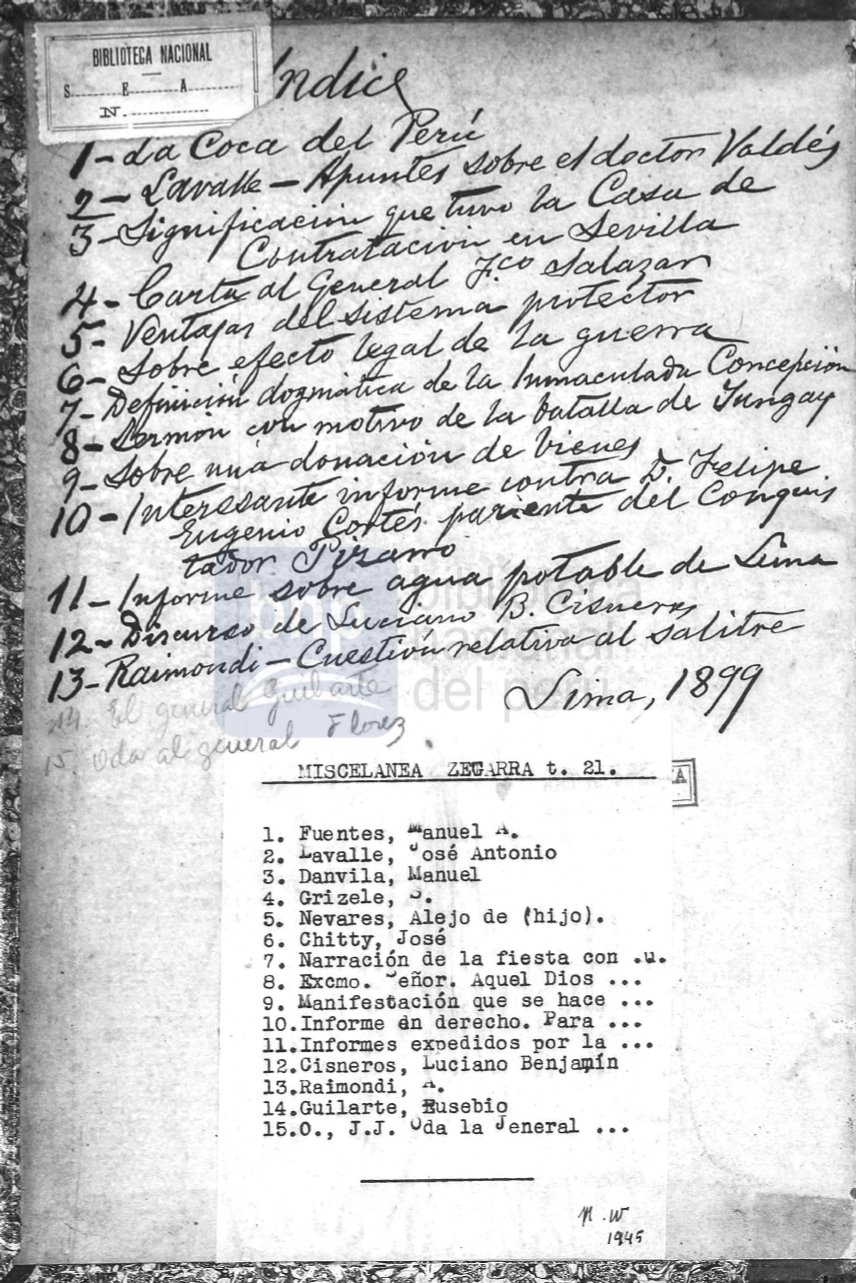 BIBLIOTECA NACIONAL
S........E........A........
N. ................
Indice
1- La Coca del Perú
2- Lavalle - Apuntes sobre el doctor Valdés
3- Significación que tuvo la Casa de
Contratación en Sevilla
4- Carta al General Fco Salazar
5- Ventajas del sistema protector
6- Sobre efecto legal de la guerra
7- Definición dogmática de la Inmaculada Concepción
8- Sermón con motivo de la batalla de Yungay
9- Sobre una donación de bienes
10- Interesante informe contra D. Felipe
Eugenio Cortés pariente del Conquis
tador Pizarro
11- Informe sobre agua potable de Lima
12- Discurso de Luciano B. Cisneros
13- Raimondi - Cuestión relativa al salitre
14. El general Guilarte
15. Oda al general Florez
Lima, 1899
bnp biblioteca
nacional
del perú
MISCELANEA ZEGARRA t. 21.
1. Fuentes, Manuel A.
2. Lavalle, José Antonio
3. Danvila, Manuel
4. Grizele, S.
5. Nevares, Alejo de (hijo).
6. Chitty, José
7. Narración de la fiesta con .u.
8. Excmo. Señor. Aquel Dios ...
9. Manifestación que se hace ...
10.Informe en derecho. Para ...
11.Informes expedidos por la ...
12.Cisneros, Luciano Benjamín
13.Raimondi, A.
14.Guilarte, Eusebio
15.O., J.J. Oda la Jeneral ...
n.w
1945